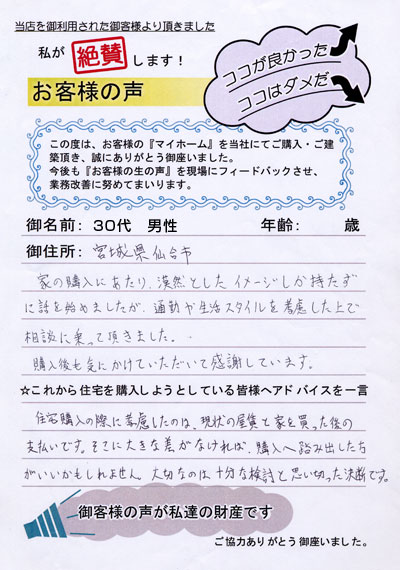 当店を御利用された御客様より頂きました
私が 絶賛 します！
ココが良かった
ココはダメだ
お客様の声
この度は、お客様の『マイホーム』を当社にてご購入・ご建
築頂き、誠にありがとう御座いました。
今後も『お客様の生の声』を現場にフィードバックさせ、
業務改善に努めてまいります。
御名前： 30代 男性 年齢： 歳
御住所： 宮城県仙台市
家の購入にあたり、漠然としたイメージしか持たず
に話を始めましたが、通勤や生活スタイルを考慮した上で
相談に乗って頂きました。
購入後も気にかけていただいて感謝しています。
☆これから住宅を購入しようとしている皆様へアドバイスを一言
住宅購入の際に考慮したのは、現状の屋賃と家を買った後の
支払いです。そこに大きな差がなければ、購入へ踏み出した方
がいいかもしれません。大切なのは十分な検討と思い切った決断です。
御客様の声が私達の財産です
ご協力ありがとう御座いました。